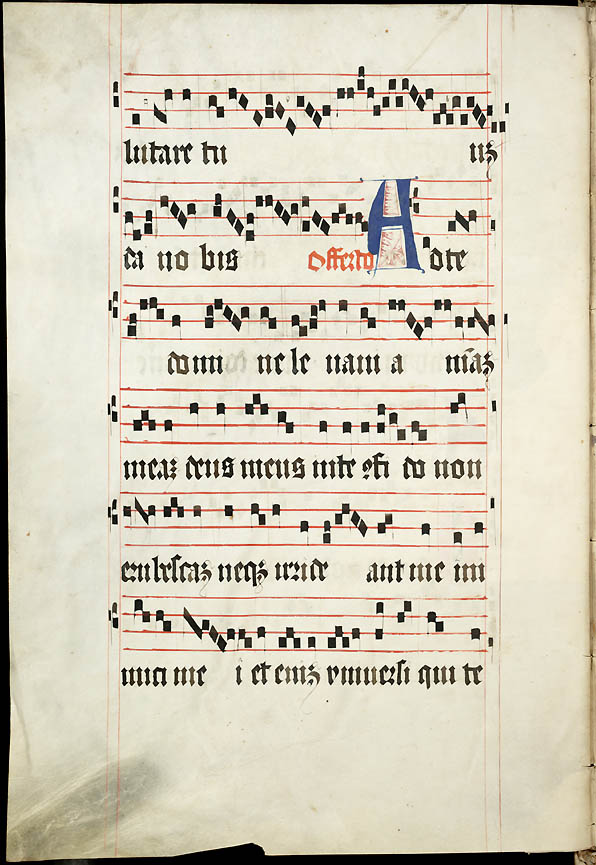 lutare tu uz
da no bis Offerto Adte
domi ne le uaui a m̄az
meaz deus meus inte ꝯfi do non
erubescaz neqz irride ant me ini
mici me i et eniz vniuersi qui te